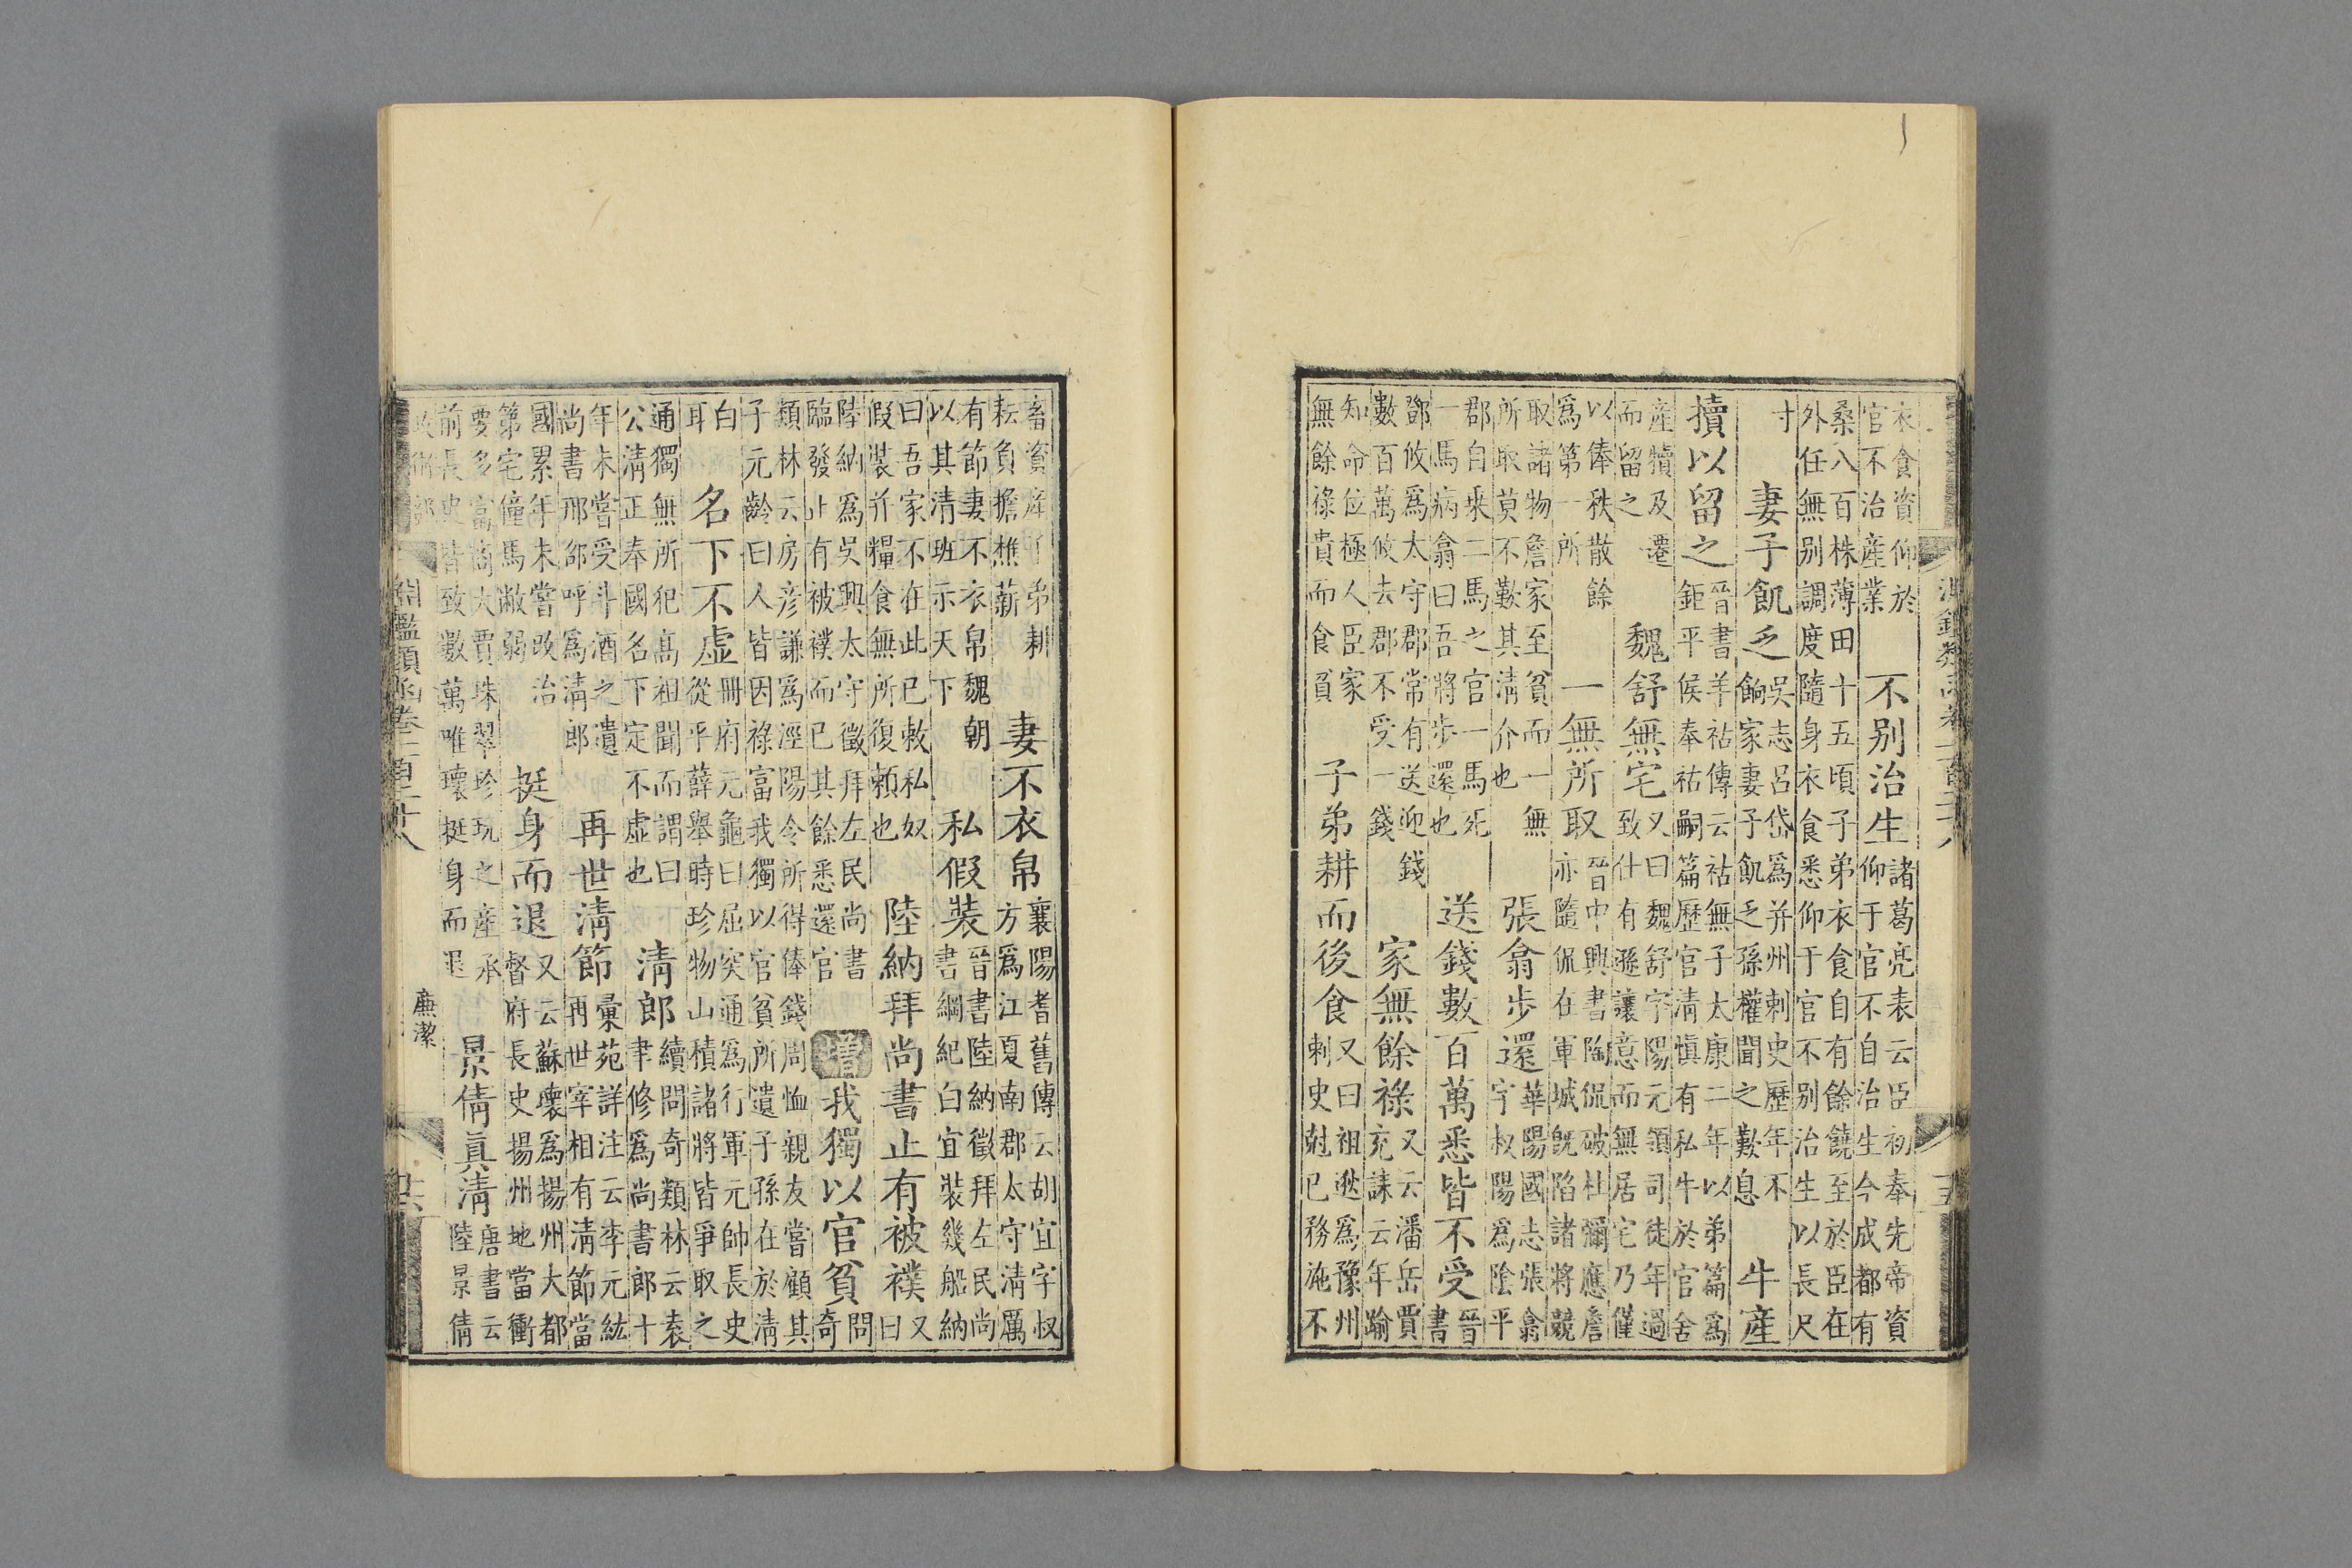 衣食資仰於官不治產業　不别治生　諸葛亮表云臣初奉先帝資仰于官不自治生今成都有
桑八百株薄田十五頃子弟衣食自有餘饒至於臣在外任無别調度隨身衣食悉仰于官不别治生以長尺
寸　妻子飢乏　吳志呂岱爲并州刺史歷年不餉家妻子飢乏孫權聞之歎息　牛產
犢以留之　晉書羊祜傳云祜無子太康二年以弟篇爲鉅平侯奉祜嗣篇歷官清愼有私牛於官舍
產犢及遷而留之　魏舒無宅　又曰魏舒字陽元領司徒年過致仕有遜讓意而無居宅乃僅
以俸秩散餘爲第一所　一無所取　晉中興書陶侃破杜彌應詹亦隨侃在軍城旣陷諸將競
取諸物詹家至貧而一無所取莫不歎其清介也　張翕步還　華陽國志張翕字叔陽爲陰平
郡自乘二馬之官一馬死一馬病翕曰吾將步還也　送錢數百萬悉皆不受　晉書
鄧攸爲太守郡常有送迎錢數百萬攸去郡不受一錢　家無餘祿　又云潘岳賈充誄云年踰
知命位極人臣家無餘祿貴而食貧　子弟耕而後食　又曰祖逖爲豫州刺史尅已務施不
淵鑑類函卷二百七十八
畜資產子弟耕耘負擔樵薪　妻不衣帛　襄陽耆舊傳云胡宜字叔方爲江夏南郡太守清厲
有節妻不衣帛魏朝以其清班示天下　私假裝　晉書陸納徵拜左民尚書綱紀白宜裝幾船納
曰吾家不在此已敕私奴假裝并糧食無所復賴也　陸納拜尚書止有被襆　又曰
陸納爲吳興太守徵拜左民尚書臨發止有被襆而已其餘悉還官　增　我獨以官貧　問奇
類林云房彦謙爲涇陽令所得俸錢周恤親友嘗顧其子元齡曰人皆因祿富我獨以官貧所遺子孫在於清
白耳　名下不虛　冊府元龜曰屈突通爲行軍元帥長史從平薛舉時珍物山積諸將皆爭取之
通獨無所犯高祖聞而謂曰公清正奉國名下定不虛也　清郎　續問奇類林云袁聿修爲尚書郎十
年未嘗受斗酒之遺尚書邢邵呼爲清郎　再世清節　彙苑詳注云李元紘再世宰相有清節當
國累年未嘗改治第宅僮馬敝弱　挺身而退　又云蘇瓌爲揚州大都督府長史揚州地當衝
要多富商大賈珠翠珍玩之產承前長史皆致數萬唯瓌挺身而退　景倩眞清　唐書云陸景倩
廉潔